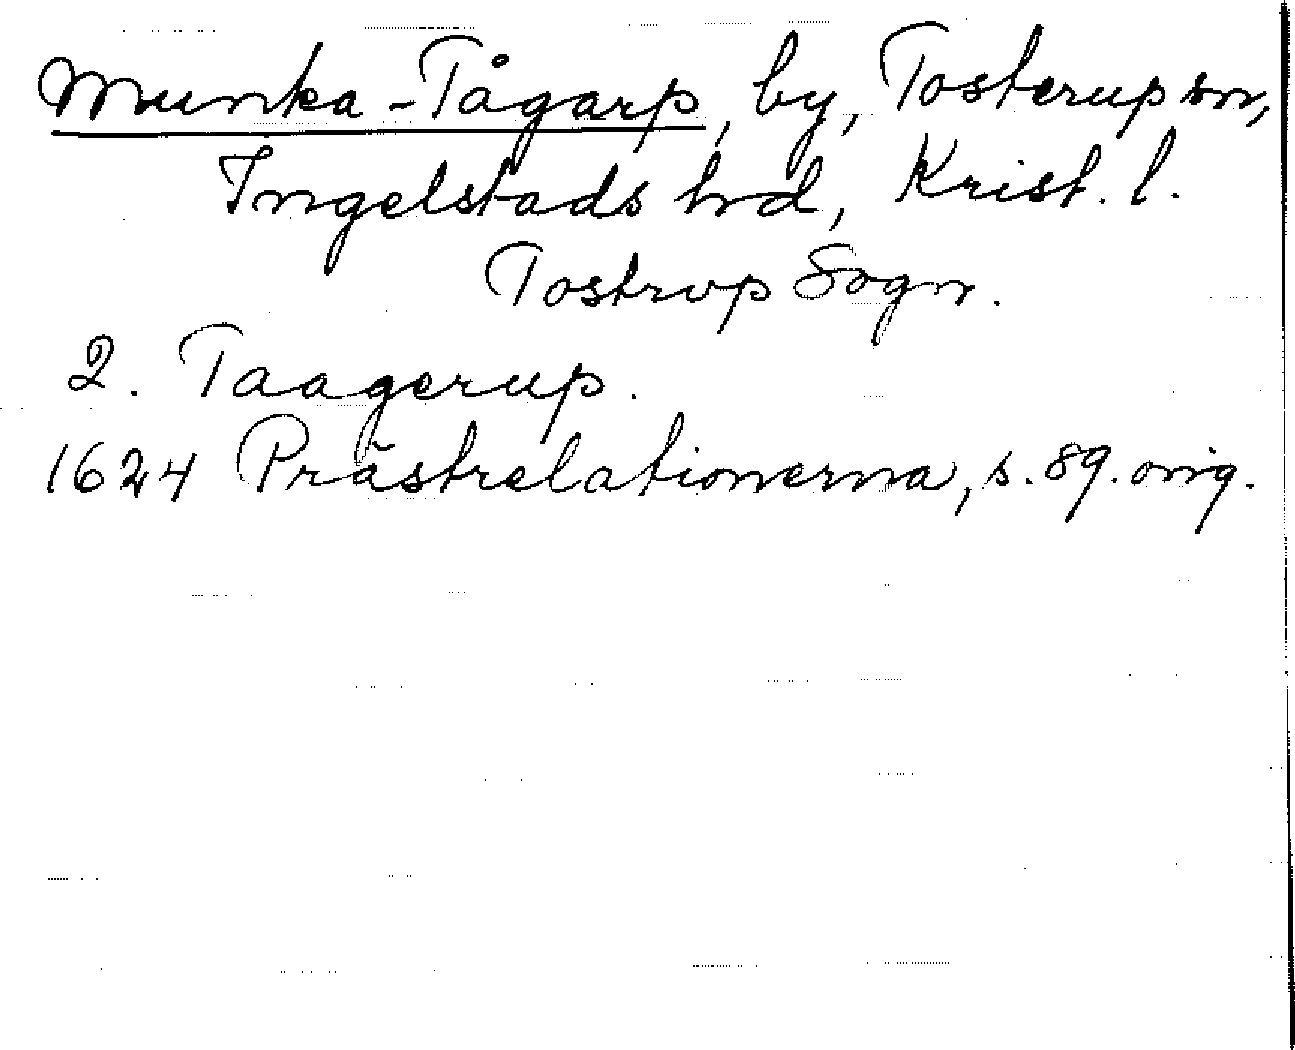 Munka-Tågarp, by, Tosterup sn,
Ingelstads hrd, Krist. l.
Tostrup Sogn.
2. Taagerup.
1624 Prästrelationerna, s. 89. orig.